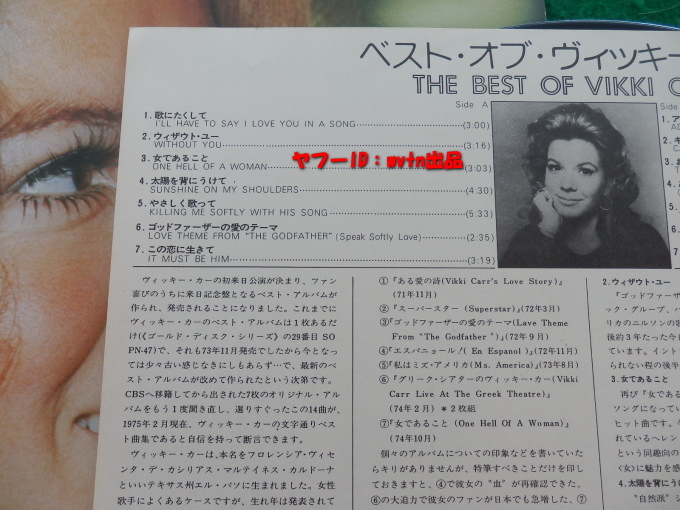 ベスト・オブ・ヴィッキー
THE BEST OF VIKKI
Side A
1. 歌にたくして
I'LL HAVE TO SAY I LOVE YOU IN A SONG (3:00)
2. ウィザウト・ユー
WITHOUT YOU (3:16)
3. 女であること
ONE HELL OF A WOMAN (3:03)
4. 太陽を背にうけて
SUNSHINE ON MY SHOULDERS (4:30)
5. やさしく歌って
KILLING ME SOFTLY WITH HIS SONG (5:33)
6. ゴッドファーザーの愛のテーマ
LOVE THEME FROM "THE GODFATHER" (Speak Softly Love) (2:35)
7. この恋に生きて
IT MUST BE HIM (3:19)
ヤフーID：mvtn出品
Side
ヴィッキー・カーの初来日公演が決まり、ファン
喜びのうちに来日記念盤となるベスト・アルバムが
作られ、発売されることになりました。これまでに
ヴィッキー・カーのベスト・アルバムは1枚あるだ
け(《ゴールド・ディスク・シリーズ》の29番目 SO
PN-47)で、それも73年11月発売でしたから今となっ
ては少々古い感じなきにしもあらず…で、最新のベ
スト・アルバムが改めて作られたという次第です。
CBSへ移籍してから出された7枚のオリジナル・アル
バムをもう1度聞き直し、選りすぐったこの14曲が、
1975年2月現在、ヴィッキー・カーの文字通りベス
ト曲集であると自信を持って断言できます。
ヴィッキー・カーは、本名をフロレンシア・ヴィセ
ンタ・デ・カシリアス・マルティネス・カルドーナ
といいテキサス州エル・パソに生まれました。女性
歌手によくあるケースですが、生れ年は発表されて
①『ある愛の詩(Vikki Carr's Love Story)』
(71年11月)
②『スーパースター (Superstar)』(72年3月)
③『ゴッドファーザーの愛のテーマ(Lave Theme
From "The Godfather")』(72年9月)
④『エスパニョール！(En Espanol)』(72年11月)
⑤『私はミズ・アメリカ(Ms. America)』(73年8月)
⑥『グリーク・シアターのヴィッキー・カー(Vikki
Carr Live At The Greek Theatre)』
(74年2月) ＊2枚組
⑦『女であること (One Hell Of A Woman)』
(74年10月)
個々のアルバムについての印象などを書いていた
らキリがありませんが、特筆すべきことだけを印し
ておきますと、④で彼女の"血"が再確認できた、
⑥の大迫力で彼女のファンが日本でも急増した、⑦
2. ウィザウト・ユー
『ゴッドファーザ
ック・グループ、バ
リカのニルソンの歌
後約3年たった今日
ています。イント
られない程の後半
3. 女であること
再び『女である
ソングになってい
ヒット曲です。
れているヘレン・
という同趣向の
〈女〉に魅力を感
4. 太陽を背にう
"自然派"シ